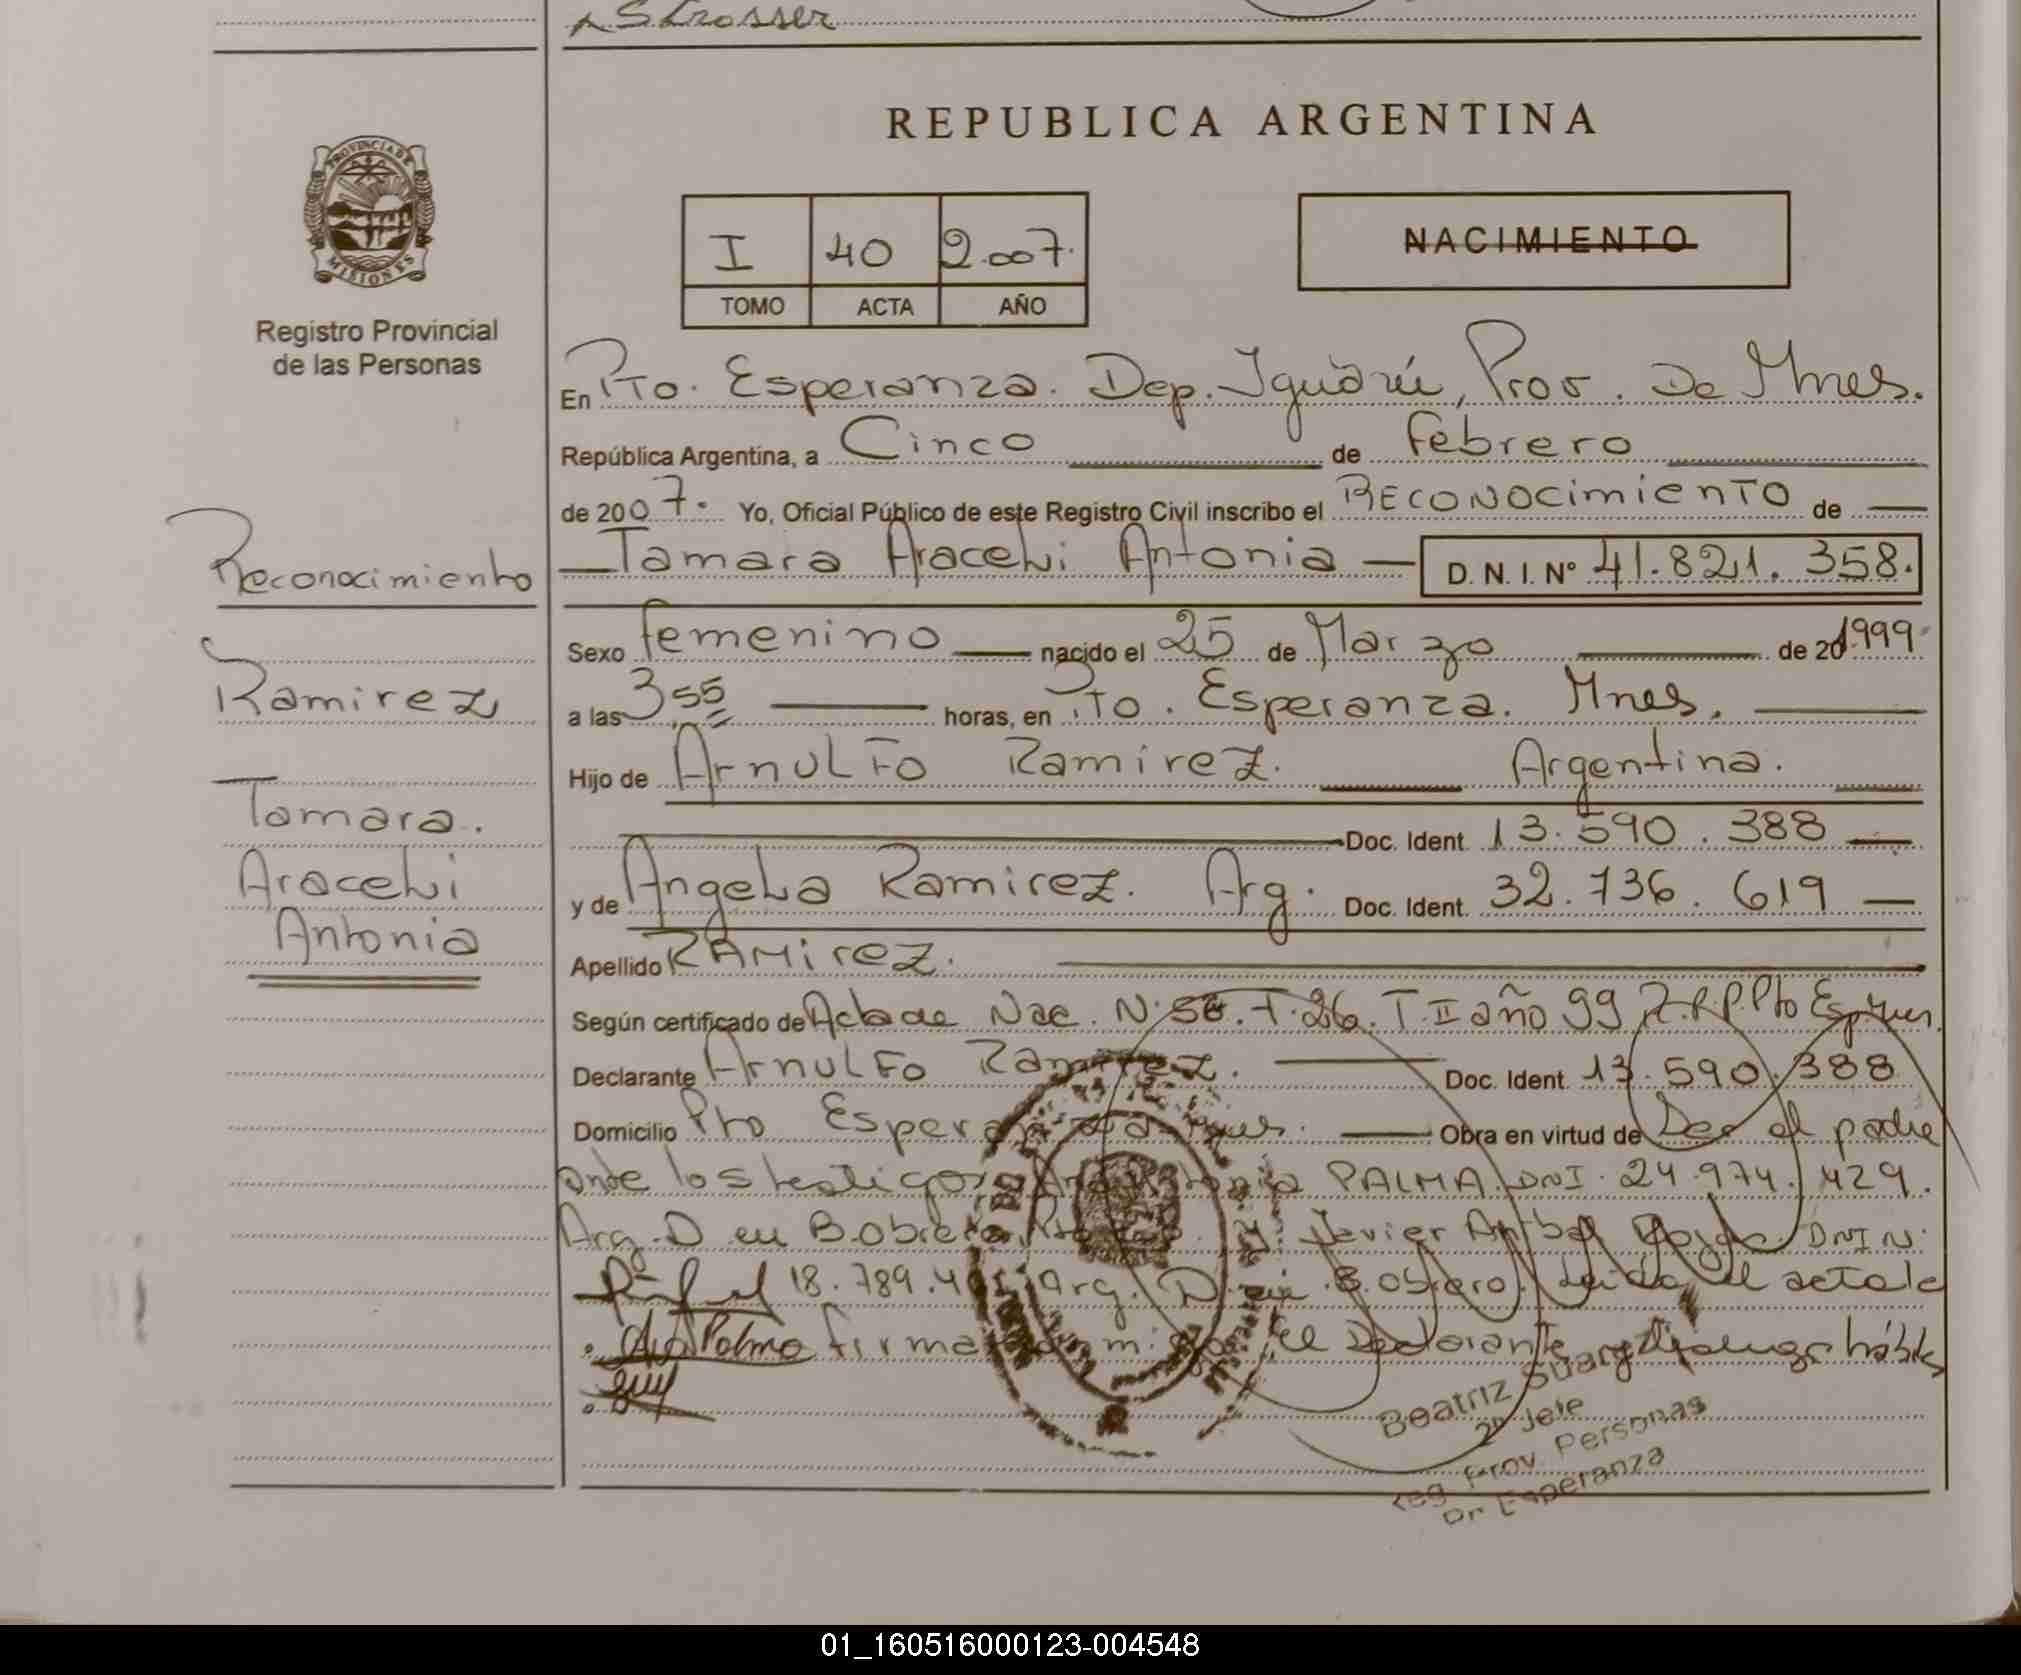 REPUBLICA ARGENTINA
PROVINCIA DE MISIONES
Registro Provincial
de las Personas
I 40 2.007.
TOMO ACTA AÑO
NACIMIENTO
En Pto. Esperanza. Dep. Iguazú, Prov. De Mnes.
República Argentina, a Cinco de Febrero
de 2007. Yo, Oficial Público de este Registro Civil inscribo el Reconocimiento de
Tamara Araceli Antonia D. N. I. Nº 41.821.358.
Sexo Femenino nacido el 25 de Marzo de 20 1999
a las 3 55 horas, en Pto. Esperanza. Mnes.
Hijo de Arnulfo Ramirez. Argentina.
Doc. Ident. 13.590.388
y de Angela Ramirez. Arg. Doc. Ident. 32.736.619
Apellido RAMirez.
Según certificado de Acta de Nac. N. T. 26. T. II año 99 Pto Esp
Declarante Arnulfo Ramirez. Doc. Ident. 13.590.388
Domicilio Pto Esperanza Obra en virtud de Ser el padre
ante los testigos PALMA. DNI. 24.974.429.
Arg. D en B. Obrero Javier DNI N.
18.789. Arg. D. en B. Obrero. Leida el acta la
Palma firma El Declarante
Reconocimiento
Ramirez
Tamara.
Araceli
Antonia
Beatriz
2º Jefe
Reg. Prov. Personas
Pto Esperanza
01_160516000123-004548